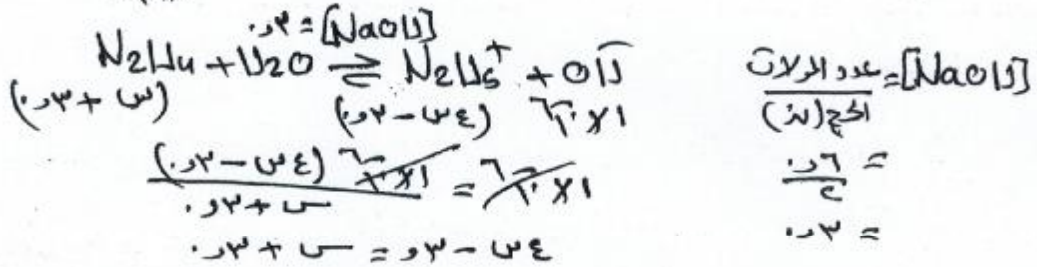 [NaOH] = ٠,٣
N2H4 + H2O ⇌ N2H5⁺ + OH⁻
(س + ٠,٣) (٤س − ٠,٣) ١×١٠⁻⁶
١×١٠⁻⁶ = ١×١٠⁻⁶ (٤س − ٠,٣)
س + ٠,٣
٤س − ,٣ = س + ٠,٣
[NaOH] = عدد المولات
الحجم (لتر)
= ٠,٦
٢
= ٠,٣